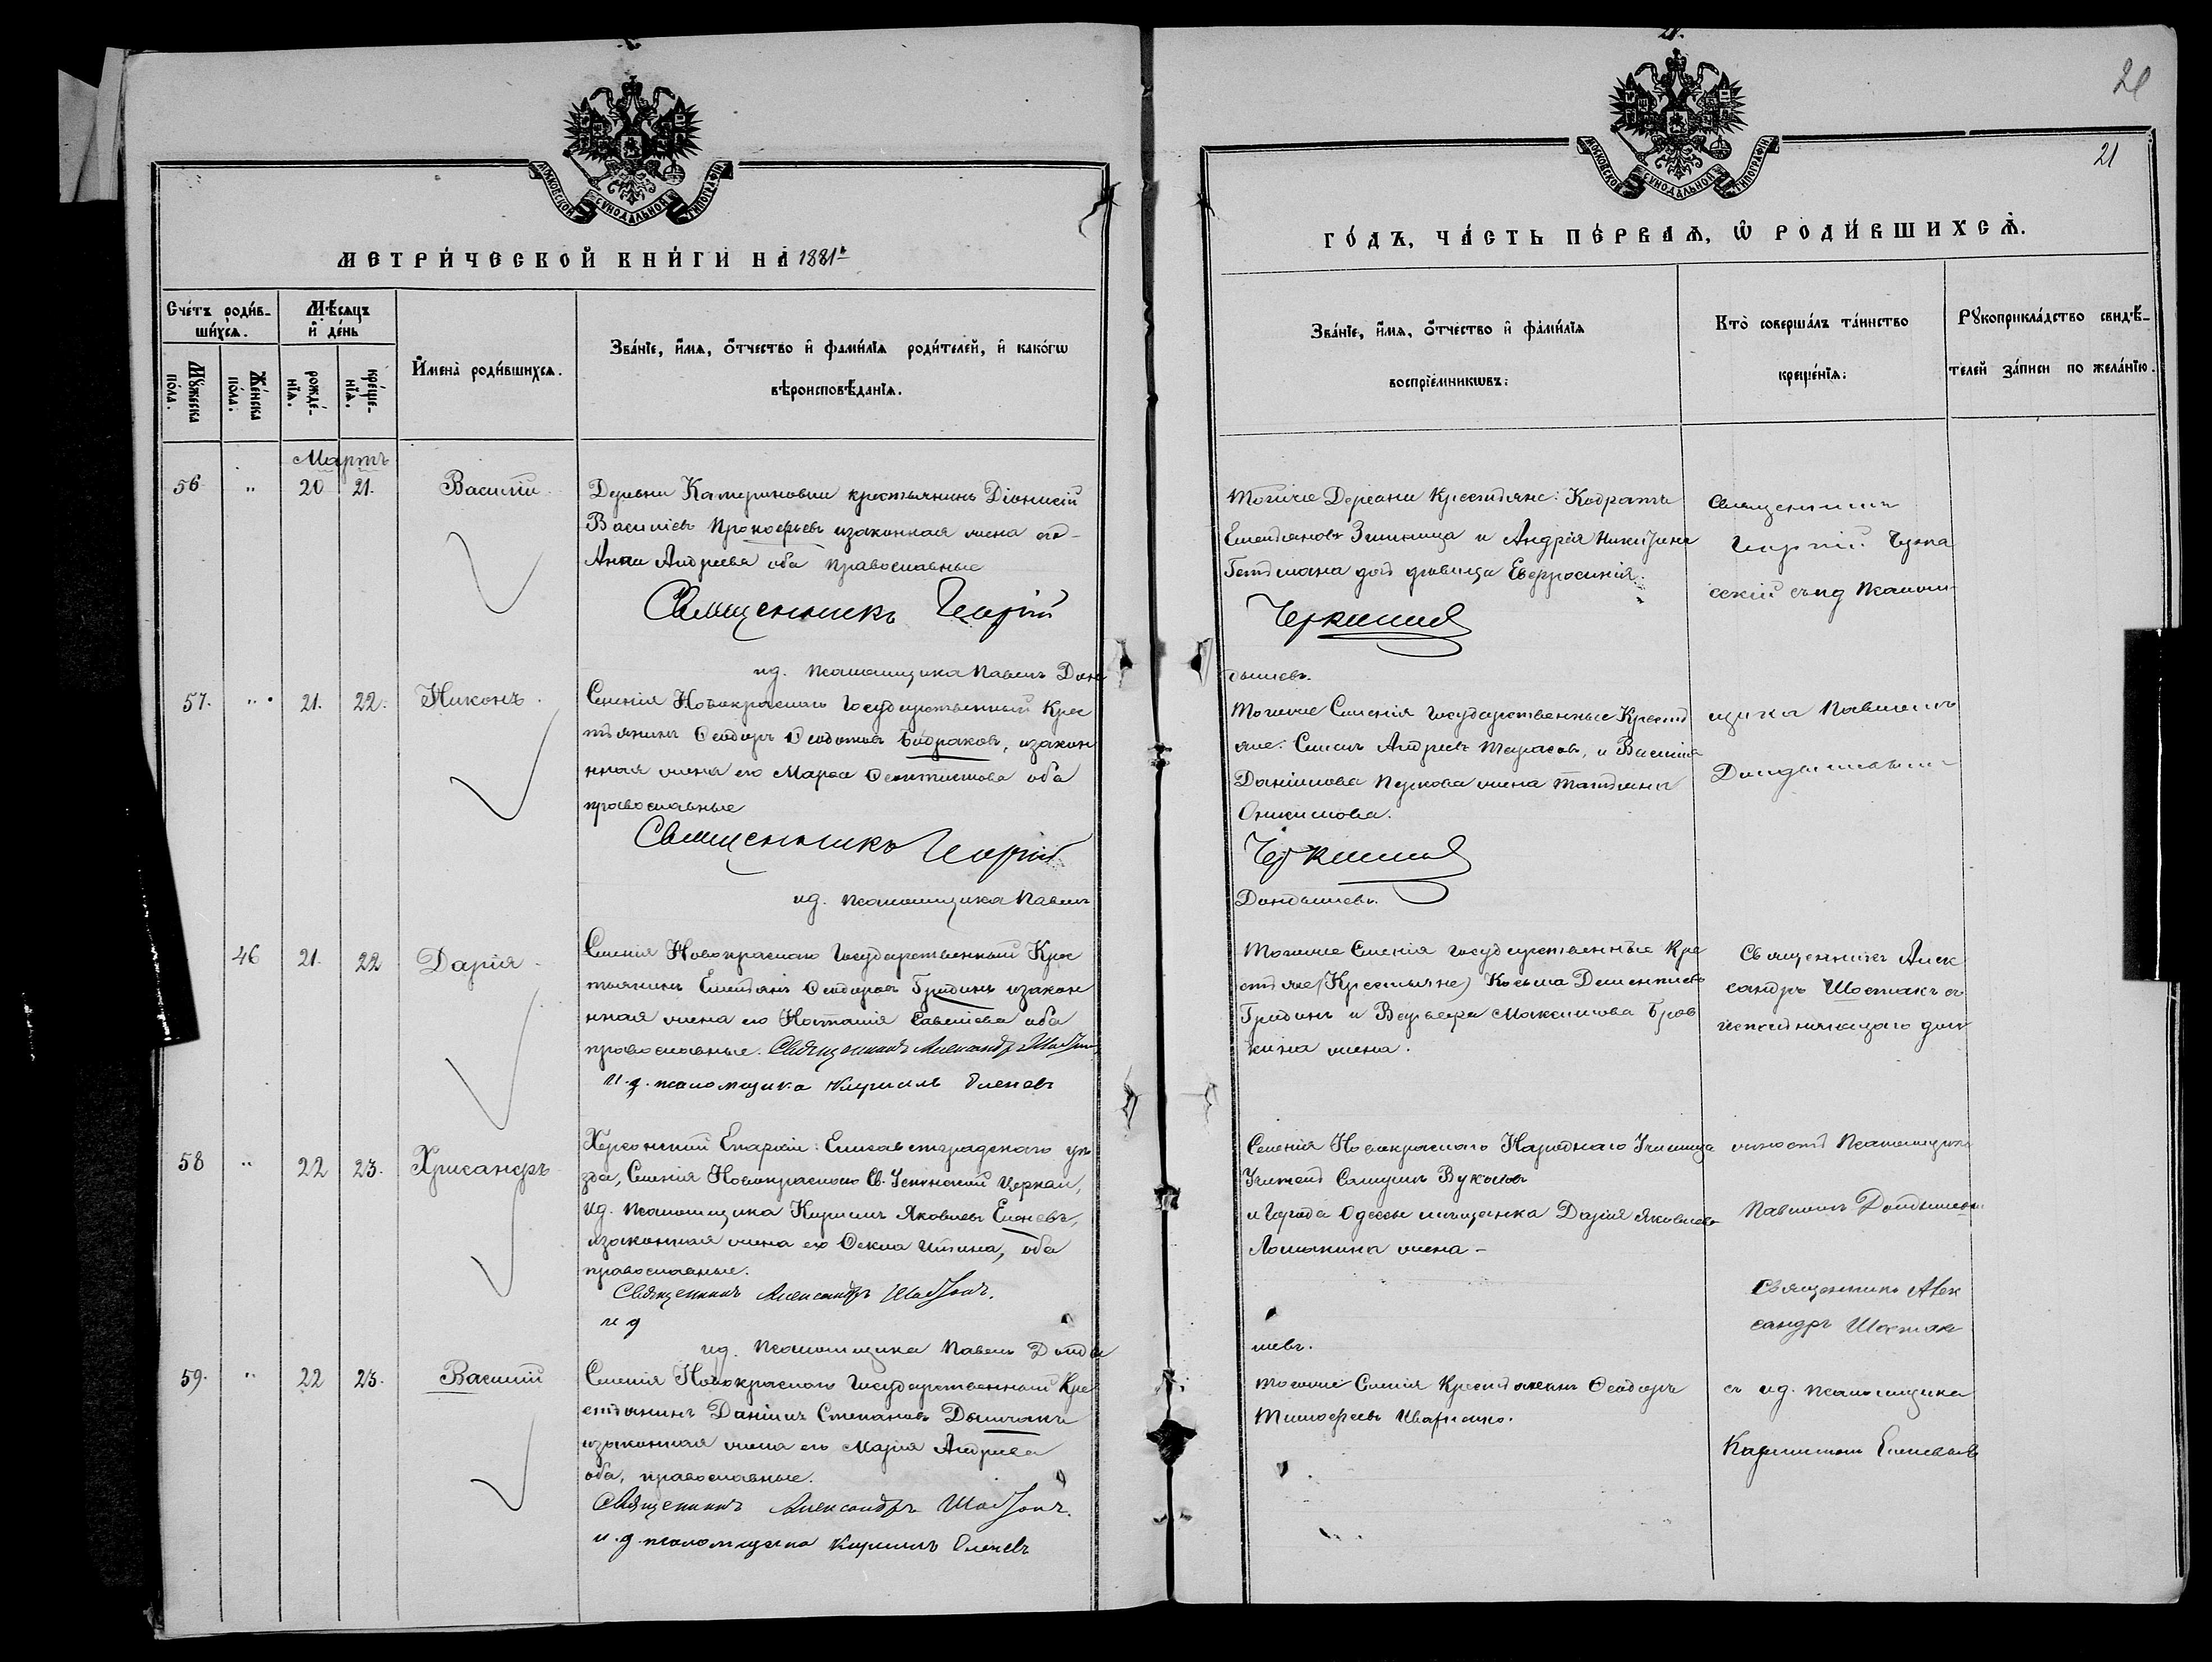 МОСКОВСКОЙ СѴНОДАЛЬНОЙ ТИПОГРАФІИ
МЕТРИ́ЧЕСКОЙ КНИ́ГИ НА 1881й
Сче́тъ роди́в-
ши́хся.
Мѣ́сяцъ
и де́нь
Му́жеска
по́ла.
Же́нска
по́ла.
рожде́-
нїя.
креще́-
нїя.
И́мена роди́вшихся.
Зва́нїе, и́мя, о́тчество и фами́лїя роди́телей, и како́гѡ
вѣроисповѣ́данїя.
Мартъ
56 " 20 21. Василій
Деревни Катериновки крестьянинъ Діонисій
Василіевъ Прокофьевъ изаконная жена его
Анна Андреева оба православные
Священникъ Георгій
ид. псаломщика Павелъ Донд
57. " 21. 22. Никонъ.
Селенія Новокраснаго Государственный Крес
тьянинъ Ѳеодоръ Ѳеодотовъ Бодраковъ, изакон
нная жена его Марѳа
православные
Священникъ Георгій
ид. псаломщика Павелъ
46 21. 22 Дарія
Селенія Новокраснаго Государственный Крес
тьянинъ Емельянъ Ѳеодоровъ Гридинъ изакон
нная жена его Наталія Савельева оба
православные. Священникъ Александръ Шостакъ
и.д. псаломщика Кириллъ Еленевъ
58 " 22 23. Хрисанфъ
Херсонской Епархіи: Елисаветградскаго уѣ
зда, Селенія Новокраснаго Св. Успенской Церкви,
ид. псаломщика Кириллъ Яковлевъ Еленевъ,
изаконная жена его Ѳекла Ильина, оба
православные.
Священникъ Александръ Шостакъ.
и д
ид. псаломщика Павелъ Донды
59. " 22 23. Василій
Селенія Новокраснаго Государственный Кре
стьянинъ Даніилъ Степановъ
изаконная жена его Марія Андреева
оба, православные.
Священникъ Александръ Шостакъ.
и.д. псаломщика Кириллъ Еленевъ
21.
21
МОСКОВСКОЙ СѴНОДАЛЬНОЙ ТИПОГРАФІИ
ГО́ДЪ, ЧА́СТЬ ПЕ́РВАЯ, Ѡ РОДИ́ВШИХСЯ.
Зва́нїе, и́мя, о́тчество и фами́лїя
воспрїе́мникѡвъ.
Кто̀ соверша́лъ та́инство
креще́нїя.
Рꙋкоприкла́дство свидѣ́-
телей за́писи по жела́нїю.
Тойже Деревни Крестьяне: Кодратъ
Емельяновъ Зимница и Андрея Никитина
Гетмана дочь дѣвица Евфросинія.
Черкаскій
дышевъ.
Священникъ
Георгій Черка
скій съ ид псалом-
Тогоже Селенія Государственные Крестья
яне: Андреевъ Тарасовъ, и Василія
Даніилова Пускова жена Татьяна
Онисимова.
Черкаскій
Дондышевъ.
щика Павломъ
Дондышевымъ
Тогоже Селенія Государственные Кре
стьяне (Крестьяне) Косьма Дементіевъ
Гридинъ и Варвара Максимова Бров
кина жена.
Священникъ Алек
сандръ Шостакъ съ
исполняющаго дол
Селенія Новокраснаго Народнаго Училища
Учитель Самуилъ Вуколовъ
и Города Одессы мѣщанка Дарія Яковлева
Ломакина жена -
жность Псаломщика
Павломъ Дондышевымъ
шевъ.
Священникъ Алек
сандръ Шостакъ
Тогоже Селенія Крестьянинъ Ѳеодоръ
Тимофеевъ Ивахненко.
съ ид. псаломщика
Кирилломъ Еленевымъ